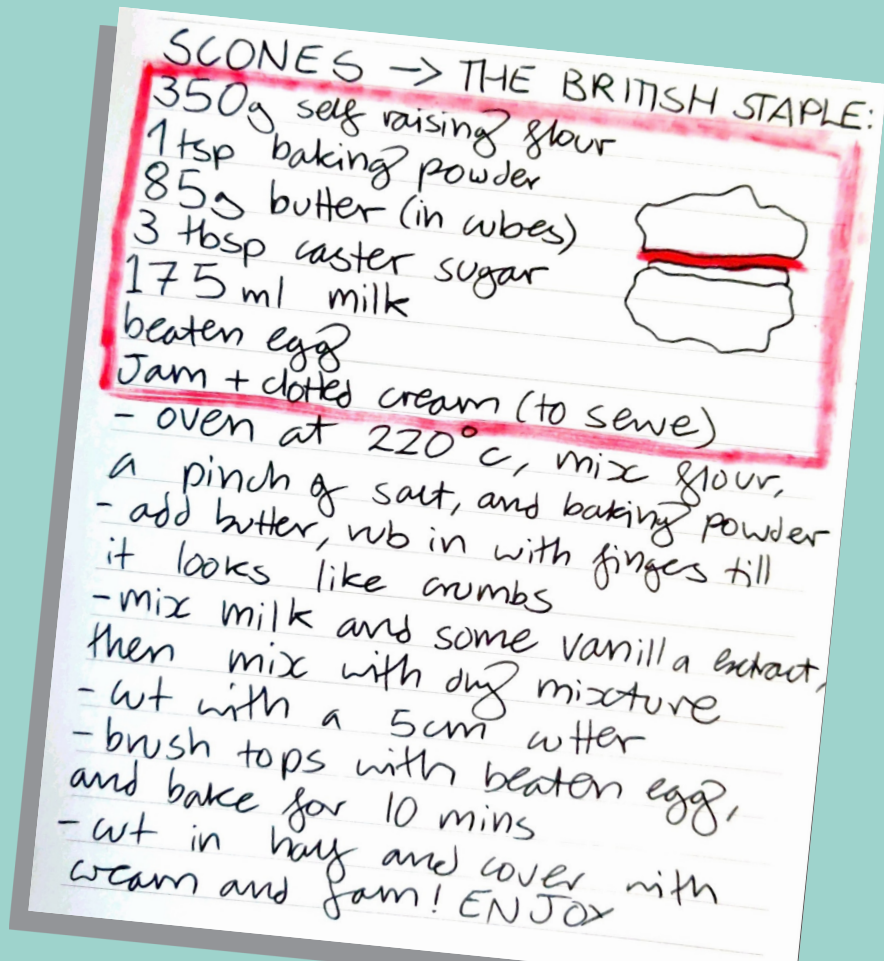 SCONES -> THE BRITISH STAPLE:
350g self raising flour
1 tsp baking powder
85g butter (in cubes)
3 tbsp caster sugar
175 ml milk
beaten egg
Jam + clotted cream (to serve)
- oven at 220°c, mix flour,
a pinch of salt, and baking powder
- add butter, rub in with finges till
it looks like crumbs
- mix milk and some vanilla extract,
then mix with dry mixture
- cut with a 5cm cutter
- brush tops with beaten egg,
and bake for 10 mins
- cut in half and cover with
cream and jam! ENJOY